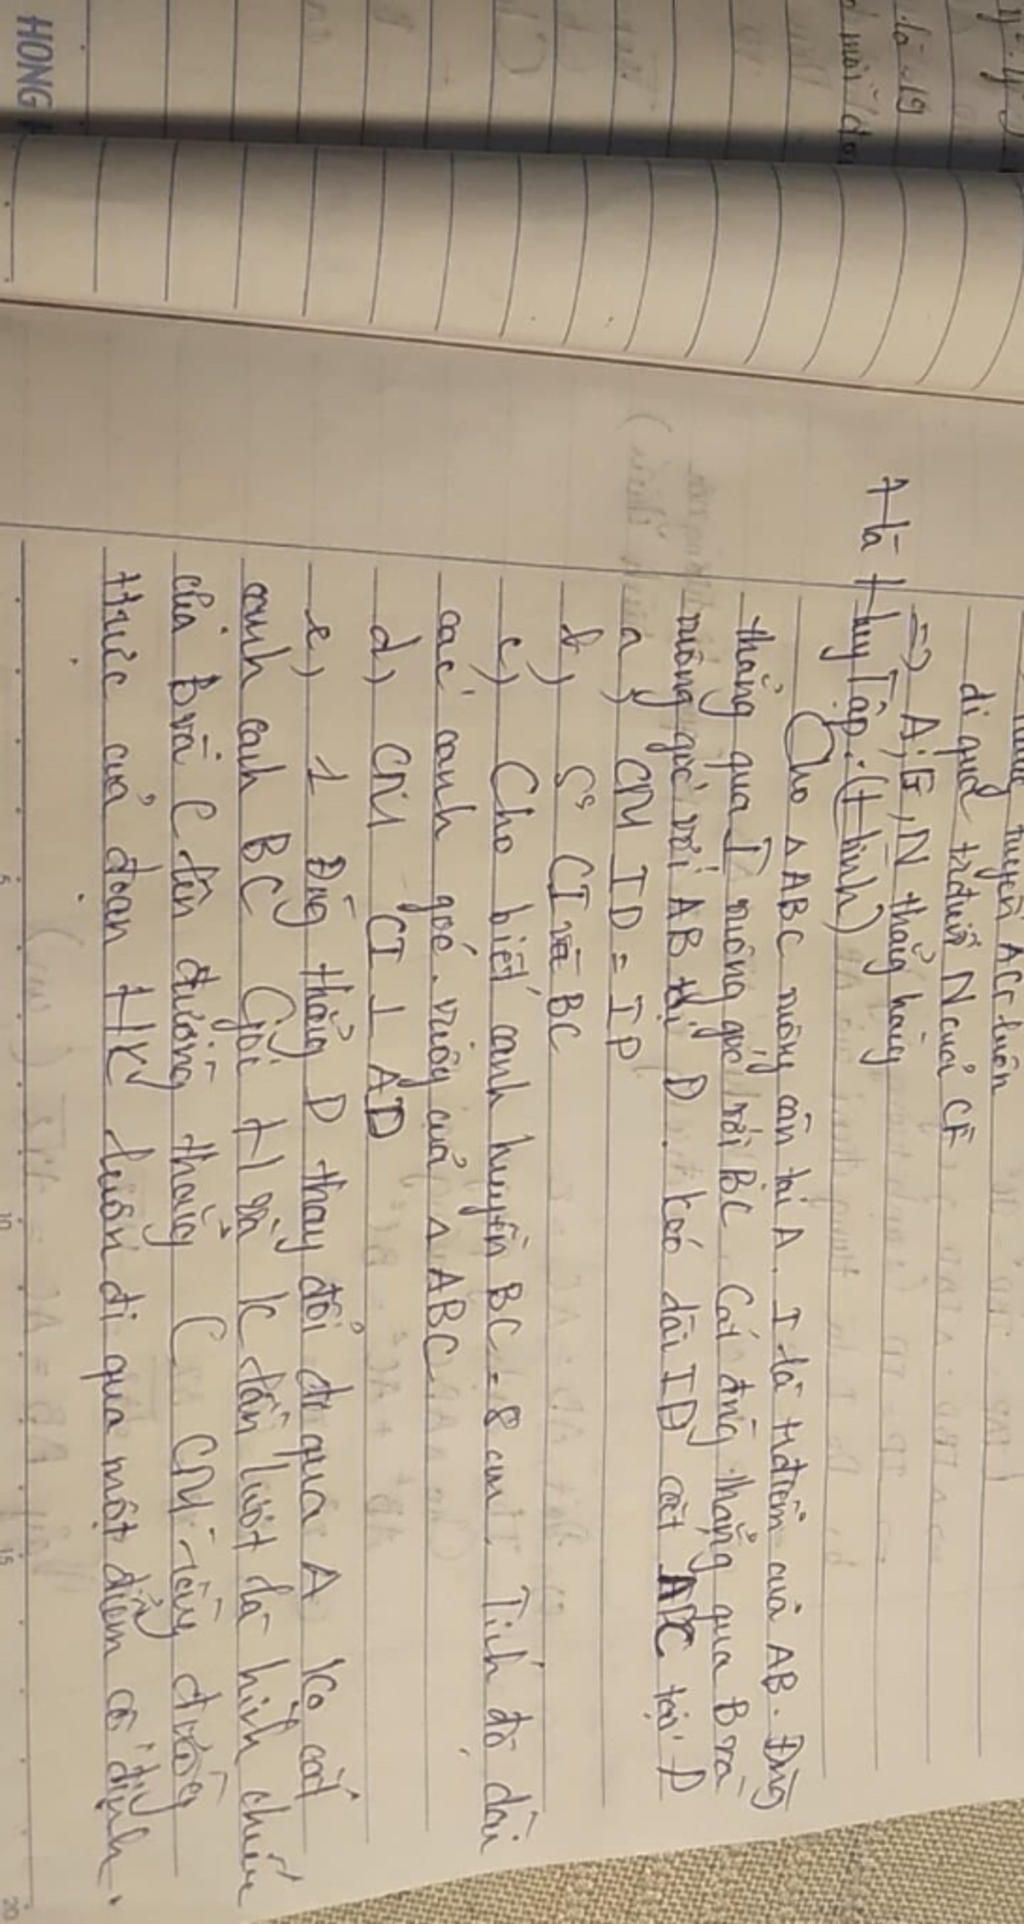 là 19
HONG
đi qua trđiểm N của CF
=> A, G, N thẳng hàng
(hình)
Cho △ABC vuông cân tại A. I là trđiểm của AB. Đng
thẳng qua I vuông góc với BC Cắt đng thẳng qua B và
vuông góc với AB tại D. kéo dài ID cắt AC tại P
a) CM ID = IP
b) S² CI và BC
c) Cho biết cạnh huyền BC = 8 cm. Tính độ dài
các cạnh góc vuông của △ABC
d) CM CI ⊥ AD
e) 1 Đng thẳng D thay đổi đi qua A ko cắt
cạnh cạnh BC Gọi H và K lần lượt là hình chiếu
của B và C lên đường thẳng CM rằng đường
của đoạn HK luôn đi qua một điểm cố định.
5
10
15
20